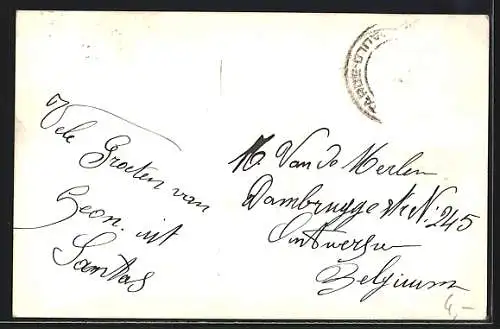 Vele
Groeten van
Leon. uit
Santos
M. Van de Merlen
Dambrugge str N: 245
Antwerpen
Belgium
4,-